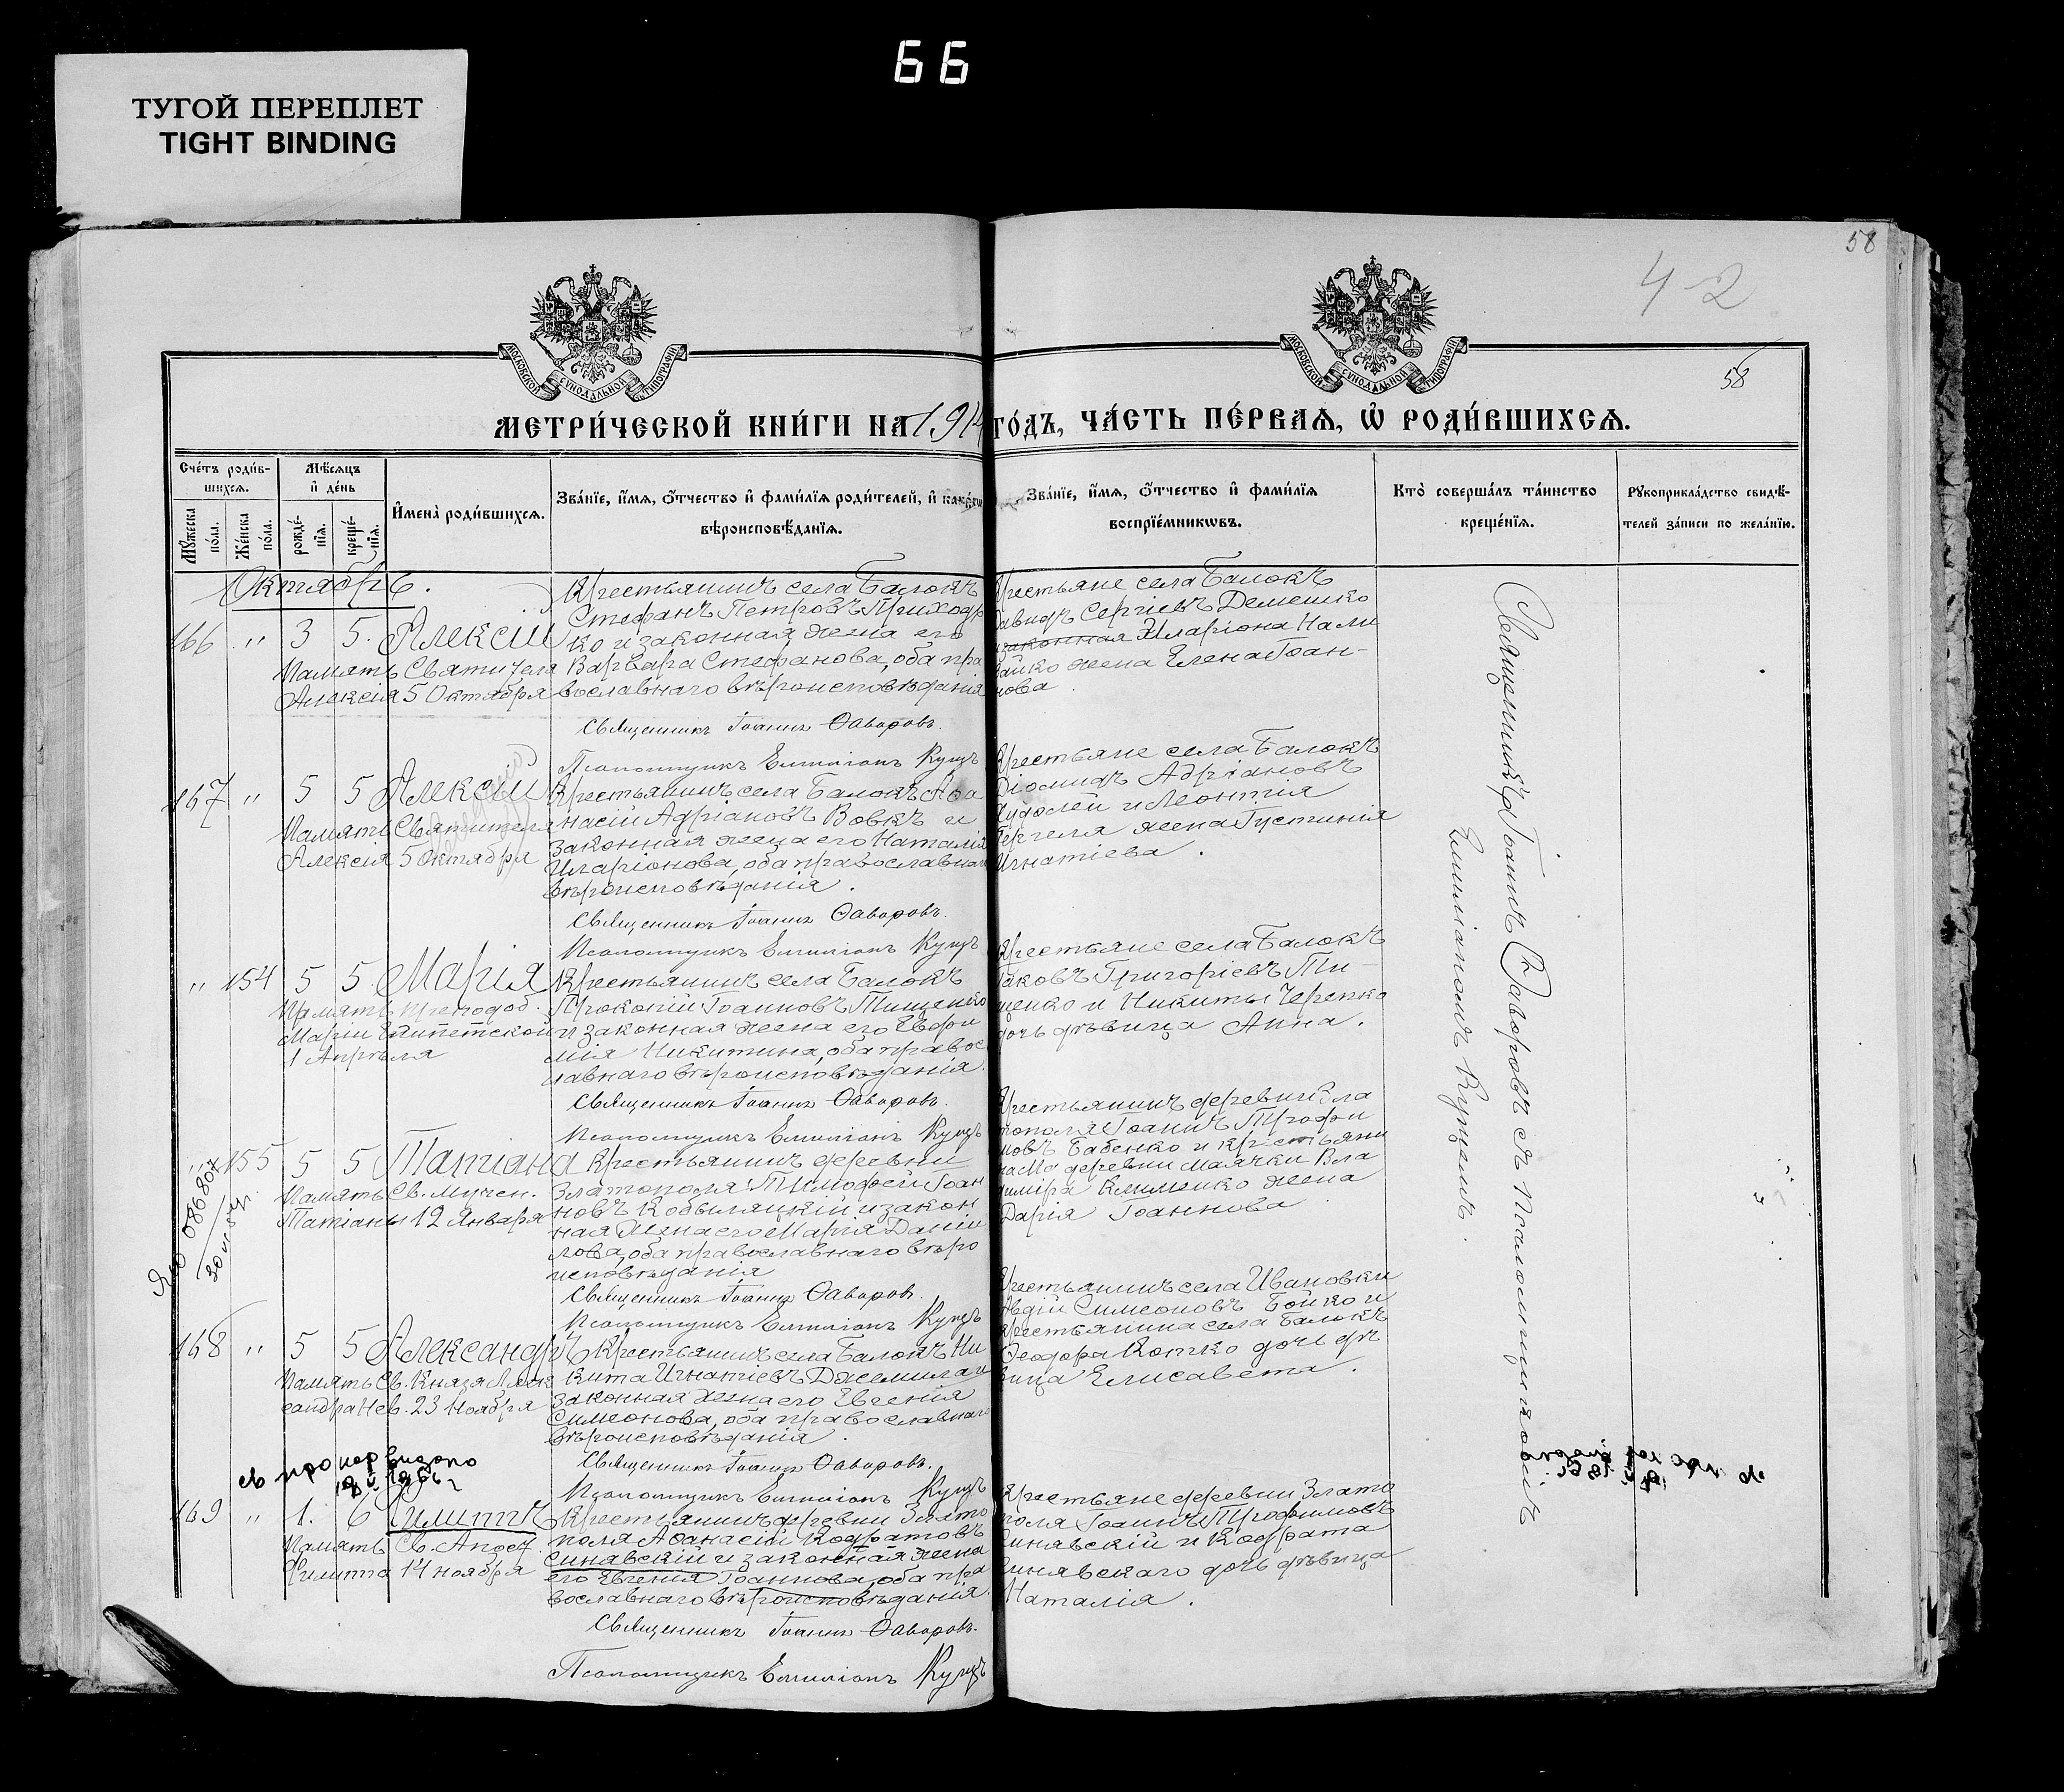 66
ТУГОЙ ПЕРЕПЛЕТ
TIGHT BINDING
58
42
58
МОСКОВСКОЙ СѴНОДАЛЬНОЙ ТИПОГРАФІИ
МОСКОВСКОЙ СѴНОДАЛЬНОЙ ТИПОГРАФІИ
МЕТРИ́ЧЕСКОЙ КНИ́ГИ НА 1914 ГО́ДЪ, ЧА́СТЬ ПЕ́РВАЯ, Ѡ РОДИ́ВШИХСЯ.
Сче́тъ роди́в-
шихся.
Мѣ́сяцъ
и де́нь
Мꙋ́жеска
по́ла.
Же́нска
по́ла.
рожде́-
нїя.
креще́-
нїя.
И҆мена̀ роди́вшихся.
Зва́нїе, и҆́мя, ѻ҆́тчество и҆ фами́лїя роди́телей, и҆ како́гѡ
вѣроисповѣ́данїя.
Зва́нїе, и҆́мя, ѻ҆́тчество и҆ фами́лїя
воспрїе́мникѡвъ.
Кто̀ соверша́лъ та́инство
креще́нїя.
Рꙋкоприкла́дство свидѣ́-
телей за́писи по жела́нїю.
Октябрь.
166 " 3 5. Алексій
Память Святителя
Алексія 5 Октября
Крестьянинъ села Балокъ
Стефанъ Петровъ Приходь
ко и законная жена его
Варвара Стефанова, оба пра
вославнаго вѣроисповѣданія
Священникъ Іоаннъ Ѳаворовъ.
Псаломщикъ Емиліанъ Куцъ
Крестьяне села Балокъ
Давидъ Сергіевъ Демешко
и законная Иларіона Нали
вайко жена Елена Іоан-
нова
167 " 5 5 Алексій
Память Святителя
Алексія 5 Октября
Крестьянинъ села Балокъ Аѳа
насій Адріановъ Вовкъ и
законная жена его Наталія
Иларіонова, оба православнаго
вѣроисповѣданія.
Священникъ Іоаннъ Ѳаворовъ.
Псаломщикъ Емиліанъ Куцъ
Крестьяне села Балокъ
Діомидъ Адріановъ
и Леонтія
Гергеля жена Іустинія
Игнатіева.
" 154 5 5 Марія
Память преподоб.
Маріи Египетской
1 Апрѣля
Крестьянинъ села Балокъ
Прокопій Іоанновъ Тищенко
и законная жена его Евфи
мія Никитина, оба правос
лавнаго вѣроисповѣданія.
Священникъ Іоаннъ Ѳаворовъ.
Псаломщикъ Емиліанъ Куцъ
Крестьяне села Балокъ
Іаковъ Григоріевъ Ти-
щенко и Никиты Черепко
дочь дѣвица Анна.
" 155 5 5 Татіана
Память Св. Мучен.
Татіаны 12 Января
Крестьянинъ деревни
Златополя Тимофей Іоан
новъ Кобыляцкій и закон
ная жена его Марія Даніи
лова, оба православнаго вѣро
исповѣданія
Священникъ Іоаннъ Ѳаворовъ.
Псаломщикъ Емиліанъ Куцъ
Крестьянинъ деревни Зла
тополя Іоаннъ Трофи
мовъ Бабенко и крестьяни
на деревни Маячки Вла
диміра Клименко жена
Дарія Іоаннова
168 " 5 5 Александръ
Память Св. Князя Алек
сандра Нев. 23 Ноября
Крестьянинъ села Балокъ Ни
кита Игнатіевъ Джемила и
законная жена его Евгенія
Симеонова, оба православнаго
вѣроисповѣданія.
Священникъ Іоаннъ Ѳаворовъ.
Псаломщикъ Емиліанъ Куцъ
Крестьянинъ села Ивановки
Авдій Симеоновъ Бойко и
крестьянина села Балокъ
Ѳеодора Котко дочь дѣ
вица Елисавета.
169 " 1. 6 Филиппъ
Память Св. Апост.
Филиппа 14 ноября
Крестьянинъ деревни Злато
поля Аѳанасій Кодратовъ
Синявскій и законная жена
его Евгенія Іоаннова, оба пра
вославнаго вѣроисповѣданія.
Священникъ Іоаннъ Ѳаворовъ.
Псаломщикъ Емиліанъ Куцъ
Крестьяне деревни Злато
поля Іоаннъ Трофимовъ
Синявскій и Кодрата
Синявскаго дочь дѣвица
Наталія.
Священникъ Іоаннъ Ѳаворовъ съ Псаломщикомъ
Емиліаномъ Куцемъ.